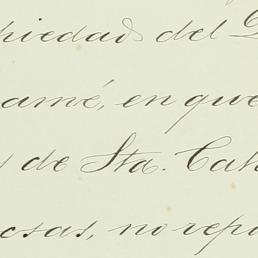 piedad del
amé, en que
de Sta. Cat
cosas, no repo